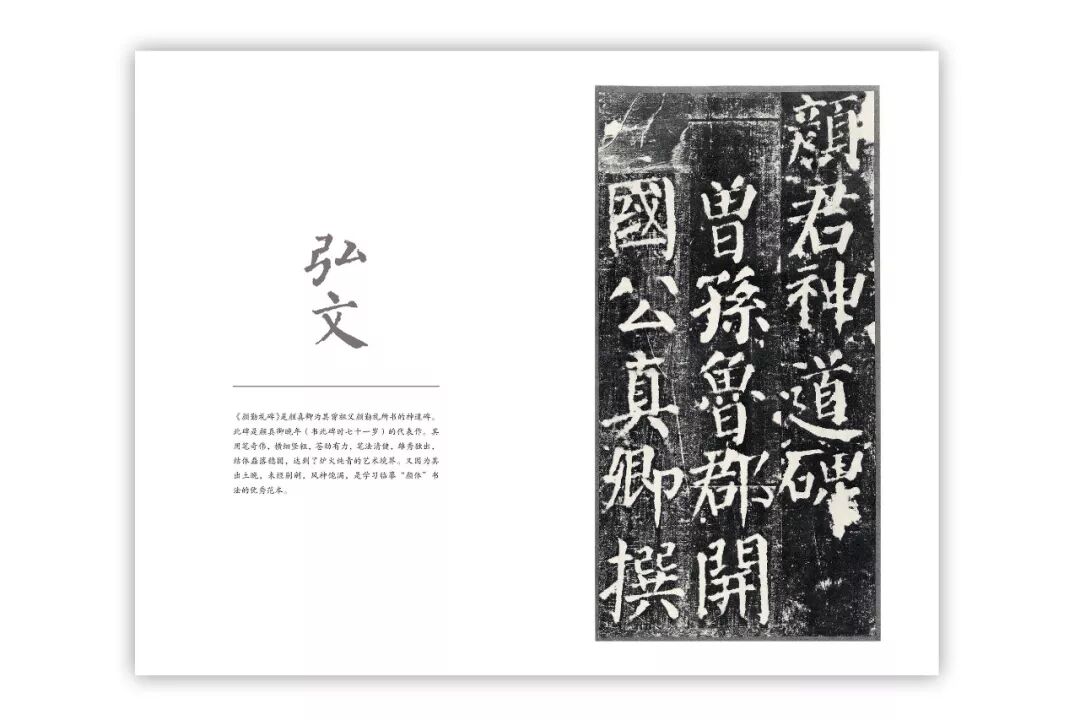 弘
文
《颜勤礼碑》是颜真卿为其曾祖父颜勤礼所书的神道碑。
此碑是颜真卿晚年（书此碑时七十一岁）的代表作。其
用笔奇伟，横细竖粗，苍劲有力，笔法清健，雄秀独出，
结体磊落稳固，达到了炉火纯青的艺术境界。又因为其
出土晚，未经剔剜，风神饱满，是学习临摹“颜体”书
法的优秀范本。
顏君神道碑
曾孫魯郡開
國公真卿撰